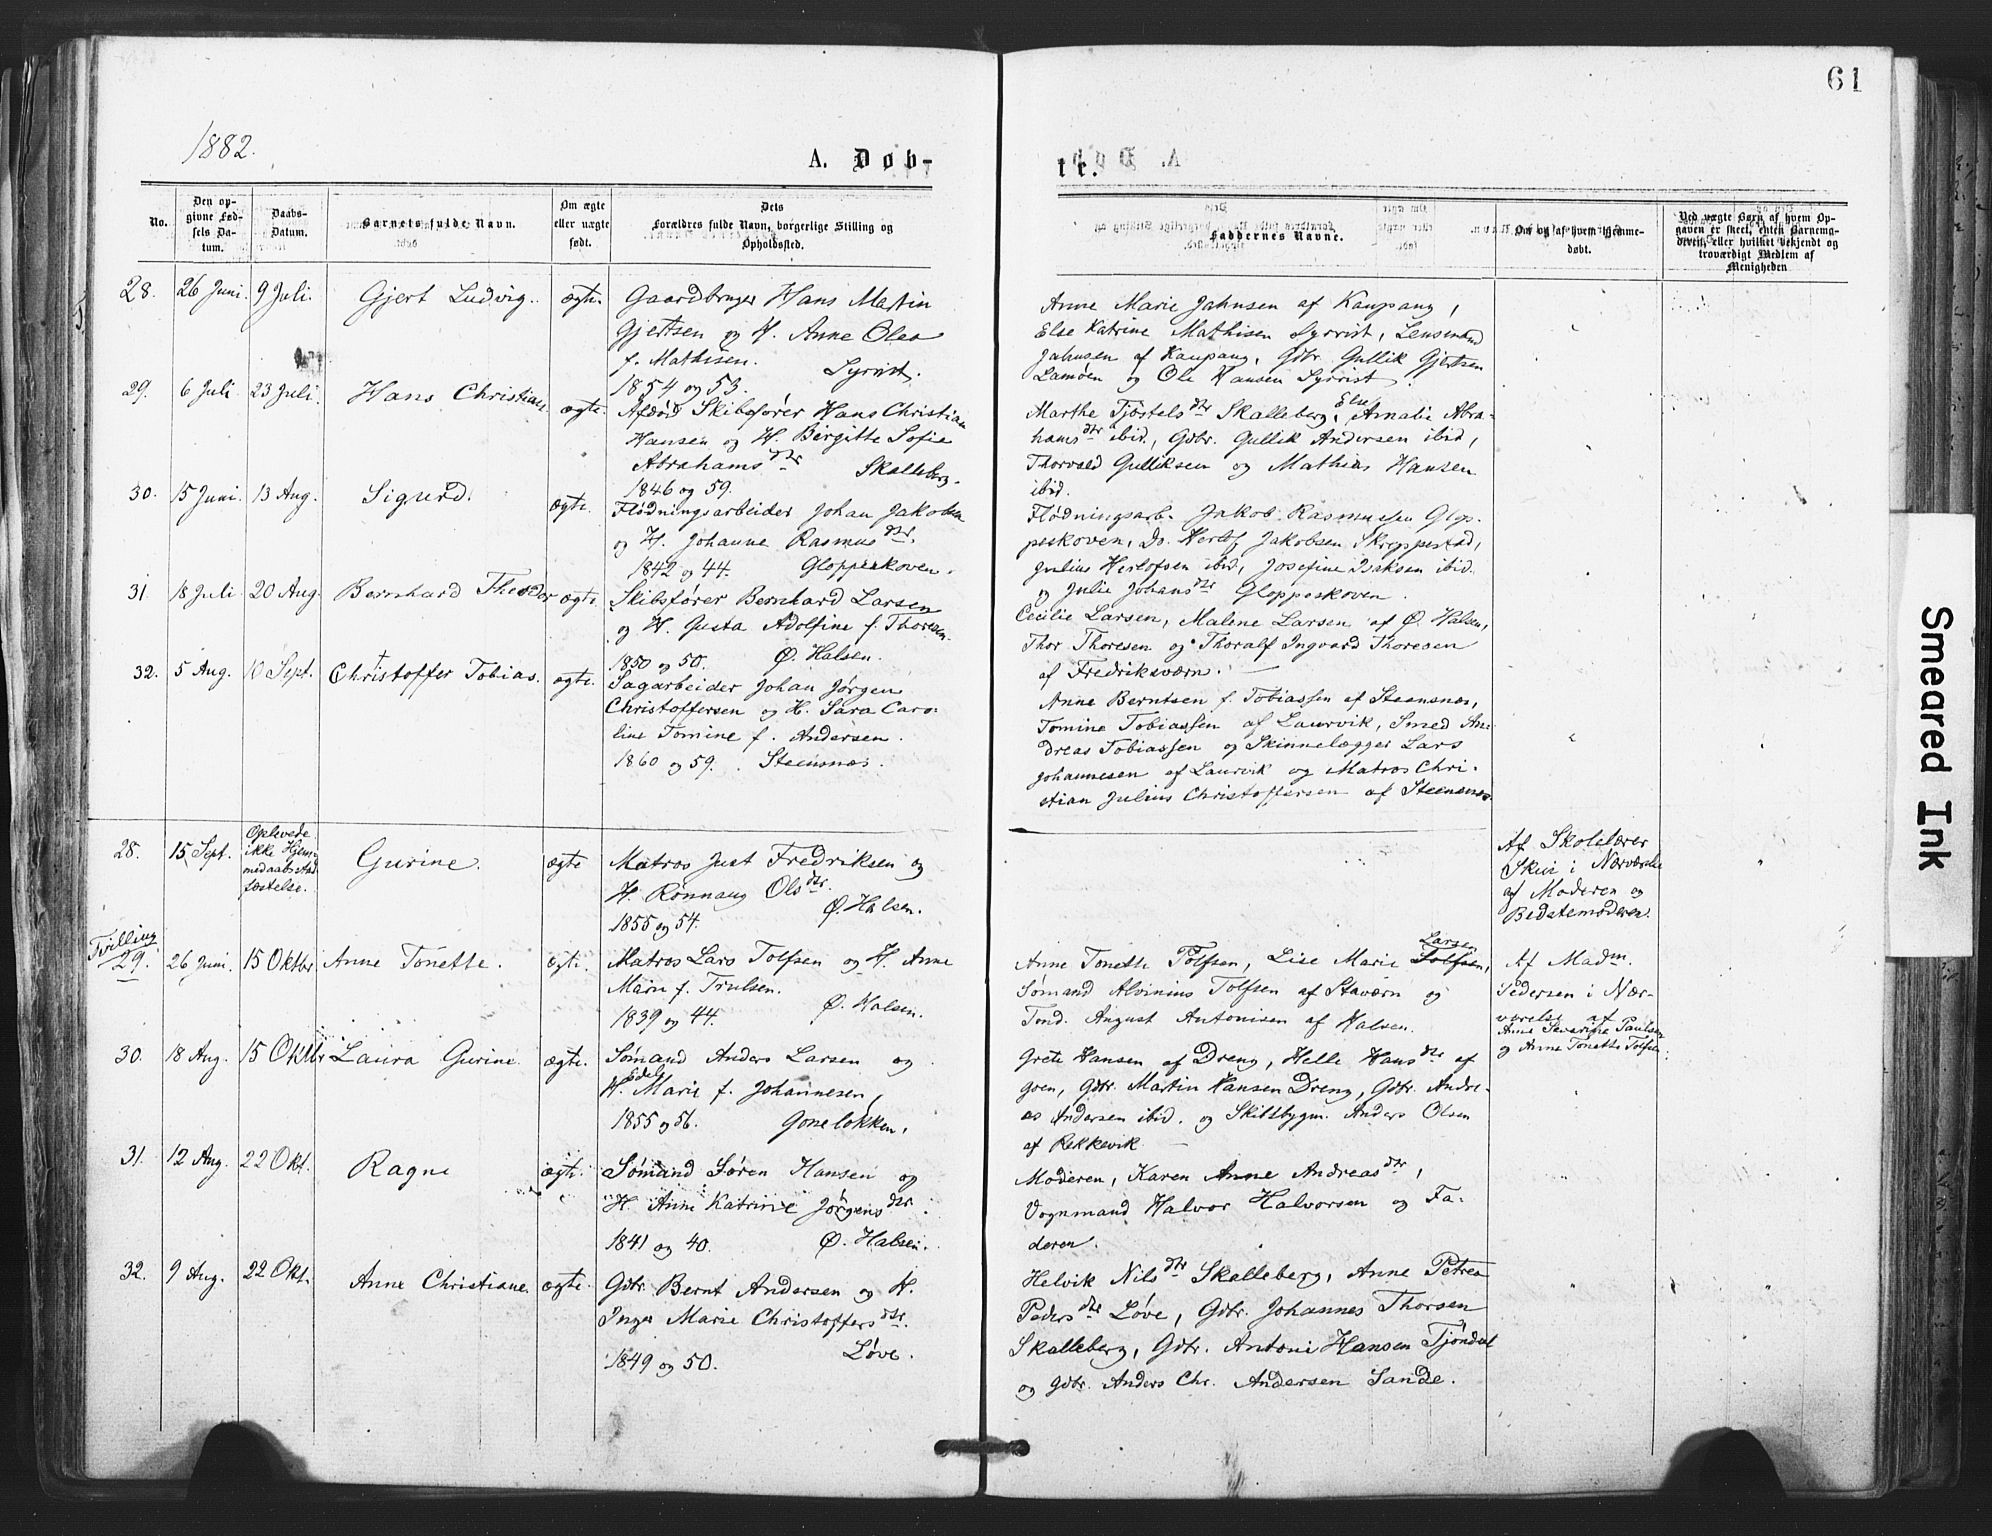 61
1882.
A. Døb-
te.
No.
Den op-
givne Fød-
sels Da-
tum.
Daabs-
Datum.
Barnets fulde Navn.
Om ægte
eller uægte
født.
Dets
Forældres fulde Navn, borgerlige Stilling og
Opholdssted.
Faddernes Navne.
Om og af hvem hjemme-
døbt.
Ved uægte Børn af hvem Op-
gaven er skeet, enten Barnemo-
deren, eller hvilket bekjendt og
troværdigt Medlem af
Menigheden
28. 26 Juni. 9 Juli. Gjert Ludvig. ægte.
Gaardbruger Hans Martin
Gjertsen og H. Anne Olea
f. Mathisen. Syrrist.
1854 og 53.
Anne Marie Jahnsen af Kaupang,
Else Katrine Mathisen Syrrist, Lensmand
Jahnsen af Kaupang, Gdbr. Gullik Gjertsen
Lamøen og Ole Hansen Syrrist.
29. 6 Juli 23 Juli. Hans Christian. ægte.
Skibsfører Hans Christian
Hansen og H. Birgitte Sofie
Abrahamsdtr Skalleberg.
1846 og 59.
Marthe Tjøstelsdtr Skalleberg, Else Amalie Abra-
hamsdtr ibid., Gdbr. Gullik Andersen ibid,
Thorvald Gulliksen og Mathias Hansen
ibid.
30. 15 Juni. 13 Aug. Sigurd. ægte.
Flødningsarbeider Johan Jakobsen
og H. Johanne Rasmusdtr.
1842 og 44. Gloppeskoven.
Flødningsarb. Jakob Rasmussen Glop-
peskoven, Do. Herlof Jakobsen Skreppestad,
Julius Herlofsen ibid, Josefine Isaksen ibid.
og Julie Johansdtr Gloppeskoven.
31. 18 Juli. 20 Aug. Bernhard Theodor ægte.
Skibsfører Bernhard Larsen
og H. Gusta Adolfine f. Thoresen.
1850 og 50. Ø. Halsen.
Cecilie Larsen, Malene Larsen af Ø. Halsen,
Thor Thoresen og Thoralf Ingvard Thoresen
af Fredriksværn.
32. 5 Aug. 10 Sept. Christoffer Tobias. ægte.
Sagarbeider Johan Jørgen
Christoffersen og H. Sara Caro-
line Tomine f. Andersen.
1860 og 59. Steensnæs.
Anne Berntsen f. Tobiassen af Steensnæs,
Tomine Tobiassen af Laurvik, Smed An-
dreas Tobiassen og Skindelægger Lars
Johannesen af Laurvik og Matros Chri-
stian Julius Christoffersen af Steensnæs.
28. 15 Sept.
Oplevede
ikke Hjem-
medaabs Stad-
fæstelse.
Gurine. ægte
Matros Just Fredriksen og
H. Rønnaug Olsdtr.
1855 og 54. Ø. Halsen.
Af Skolelærer
i Nærværelse
af Moderen og
Bedstemoderen.
Tvilling
29. 26 Juni. 15 Oktbr. Anne Tonette. ægte.
Matros Lars Tolfsen og H. Anne
Marie f. Trulsen.
1839 og 44. Ø. Halsen.
Anne Tonette Tolfsen, Lise Marie Larsen Tolfsen,
Sømand Alvinius Tolfsen af Staværn og
Tønd. August Antonisen af Halsen.
Af Madm.
Pedersen i Nær-
værelse af
Anne Severine Paulsen
og Anne Tonette Tolfsen.
30. 18 Aug. 15 Oktbr Laura Gurine ægte.
Sømand Anders Larsen og
H. Edel Marie f. Johannesen,
1855 og 56. Goneløkken.
Grete Hansen af Dreng, Helle Hansdtr af
Gren, Gdbr. Martin Hansen Dreng, Gdbr. Andre-
as Andersen ibid. og Skibsbygm. Anders Olsen
af Rekkevik
31. 12 Aug. 22 Okt. Ragne ægte.
Sømand Søren Hansen og
H. Anne Katrine Jørgensdtr.
1841 og 40. Ø. Halsen.
Moderen, Karen Anne Andreasdtr,
Vognmand Halvor Halvorsen og Fa-
deren.
32. 9 Aug. 22 Okt. Anne Christiane. ægte.
Gdbr. Bernt Andersen og H.
Inger Marie Christoffersdtr.
1849 og 50. Løve.
Helvik Nilsdtr Skalleberg, Anne Petrea
Pedersdtr Løve, Gdbr. Johannes Thorsen
Skalleberg, Gdbr. Antoni Hansen Tjøndal
og Gdbr. Anders Chr. Andersen Sande.
Smeared Ink